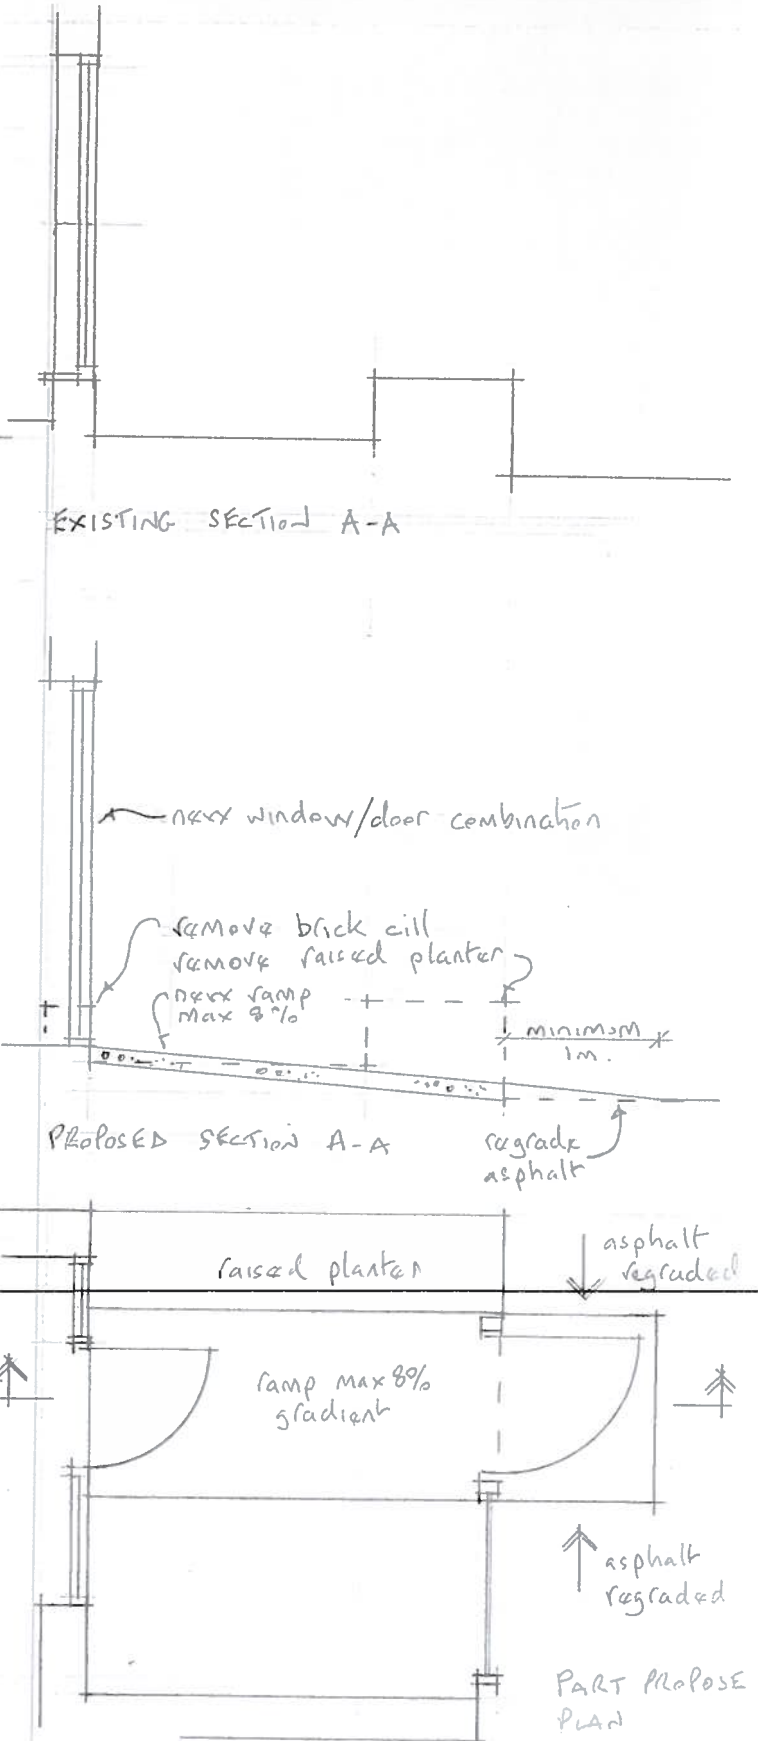 EXISTING SECTION A-A
new window/door combination
remove brick cill
remove raised planter
new ramp
max 8%
minimum
1m.
PROPOSED SECTION A-A
regrade
asphalt
raised planter
asphalt
regraded
ramp max 8%
gradient
asphalt
regraded
PART PROPOSE
PLAN